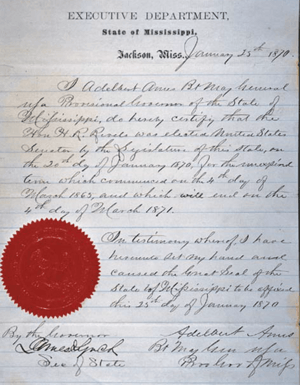 EXECUTIVE DEPARTMENT,
State of Mississippi,
Jackson, Miss. January 25th 1870
I Adelbert Ames Bt Maj General
USA Provisional Governor of the State of
Mississippi, do hereby certify that the
Hon H. R. Revels was elected United States
Senator by the Legislature of this state, on
the 20th day of January 1870, for the unexpired
term which commenced on the 4th day of
March 1865, and which will end on the
4th day of March 1871.
In testimony whereof I have
hereunto set my hand and
caused the Great Seal of the
State of Mississippi to be affixed
this 25th day of January 1870
By the Governor
James Lynch
Sec of State
Adelbert Ames
Bt Maj Gen USA
Prov Gov of Miss